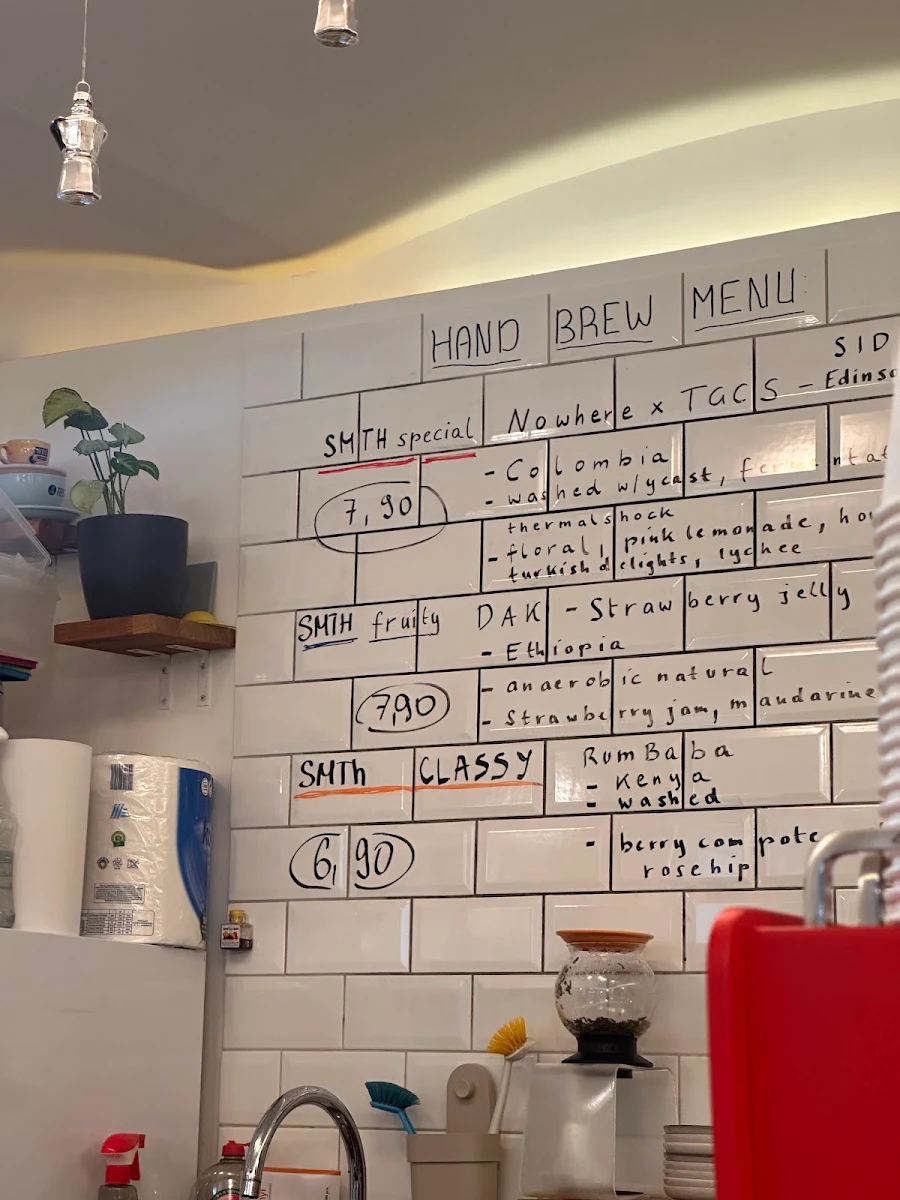 HAND BREW MENU
SMTH special
Nowhere x TGCS -
7,90
- Colombia
- washed w/ycast,
thermalshock
- floral, pink lemonade,
turkish delights, lychee
SMTH fruity
DAK - Strawberry jelly
- Ethiopia
7,90
- anaerobic natural
- Strawberry jam, mandarine
SMTh CLASSY
RumBaba
- Kenya
- washed
6,90
- berry compote
rosehip